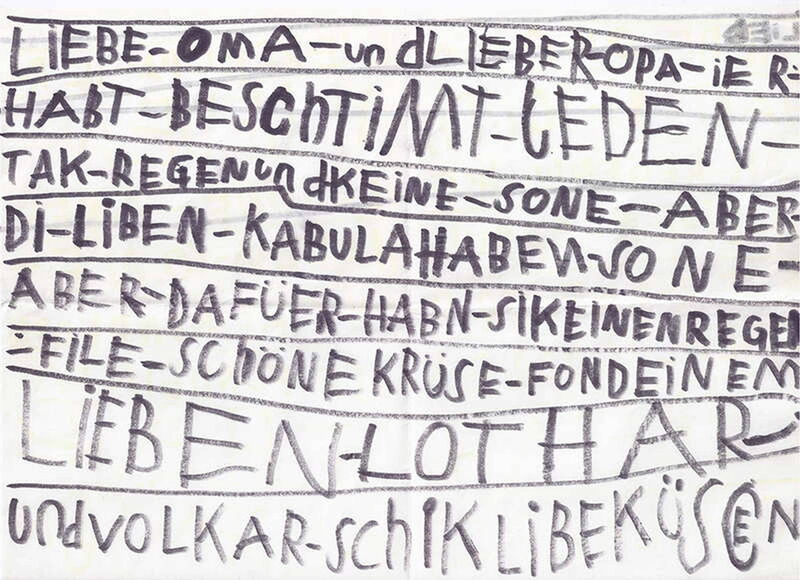 LiEBE-OMA-undLIEBER-OPA-iER-
HABT-BESCHTiMT-LEDEN-
TAK-REGENundKEiNE-SONE-ABER-
Di-LiBEN-KABULAHABEN-SONE-
ABER-DAFÜER-HABN-SIKEINENREGEN
-FILE-SCHÖNEKRÜSE-FONDEiNEM
LiEBEN-LOTHAR-
undVOLKAR-SCHIKLiBEKÜSCEN